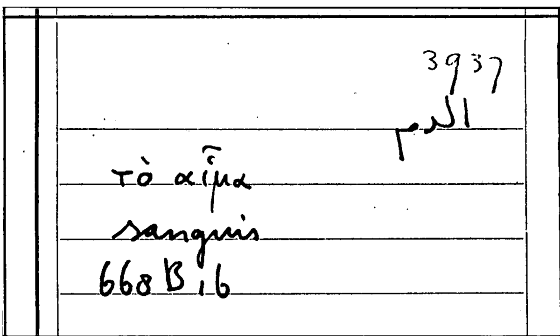 3937
الدم
τὸ αἷμα
sanguis
668 B, 6